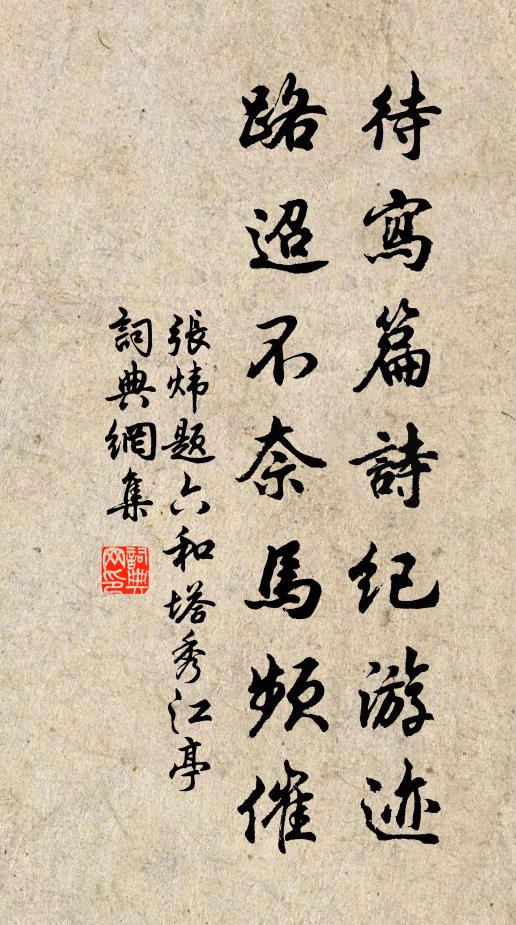 待寫篇詩纪游迹
路迢不奈馬頻催
張炜题六和塔秀江亭
詞典網集
詞典网印